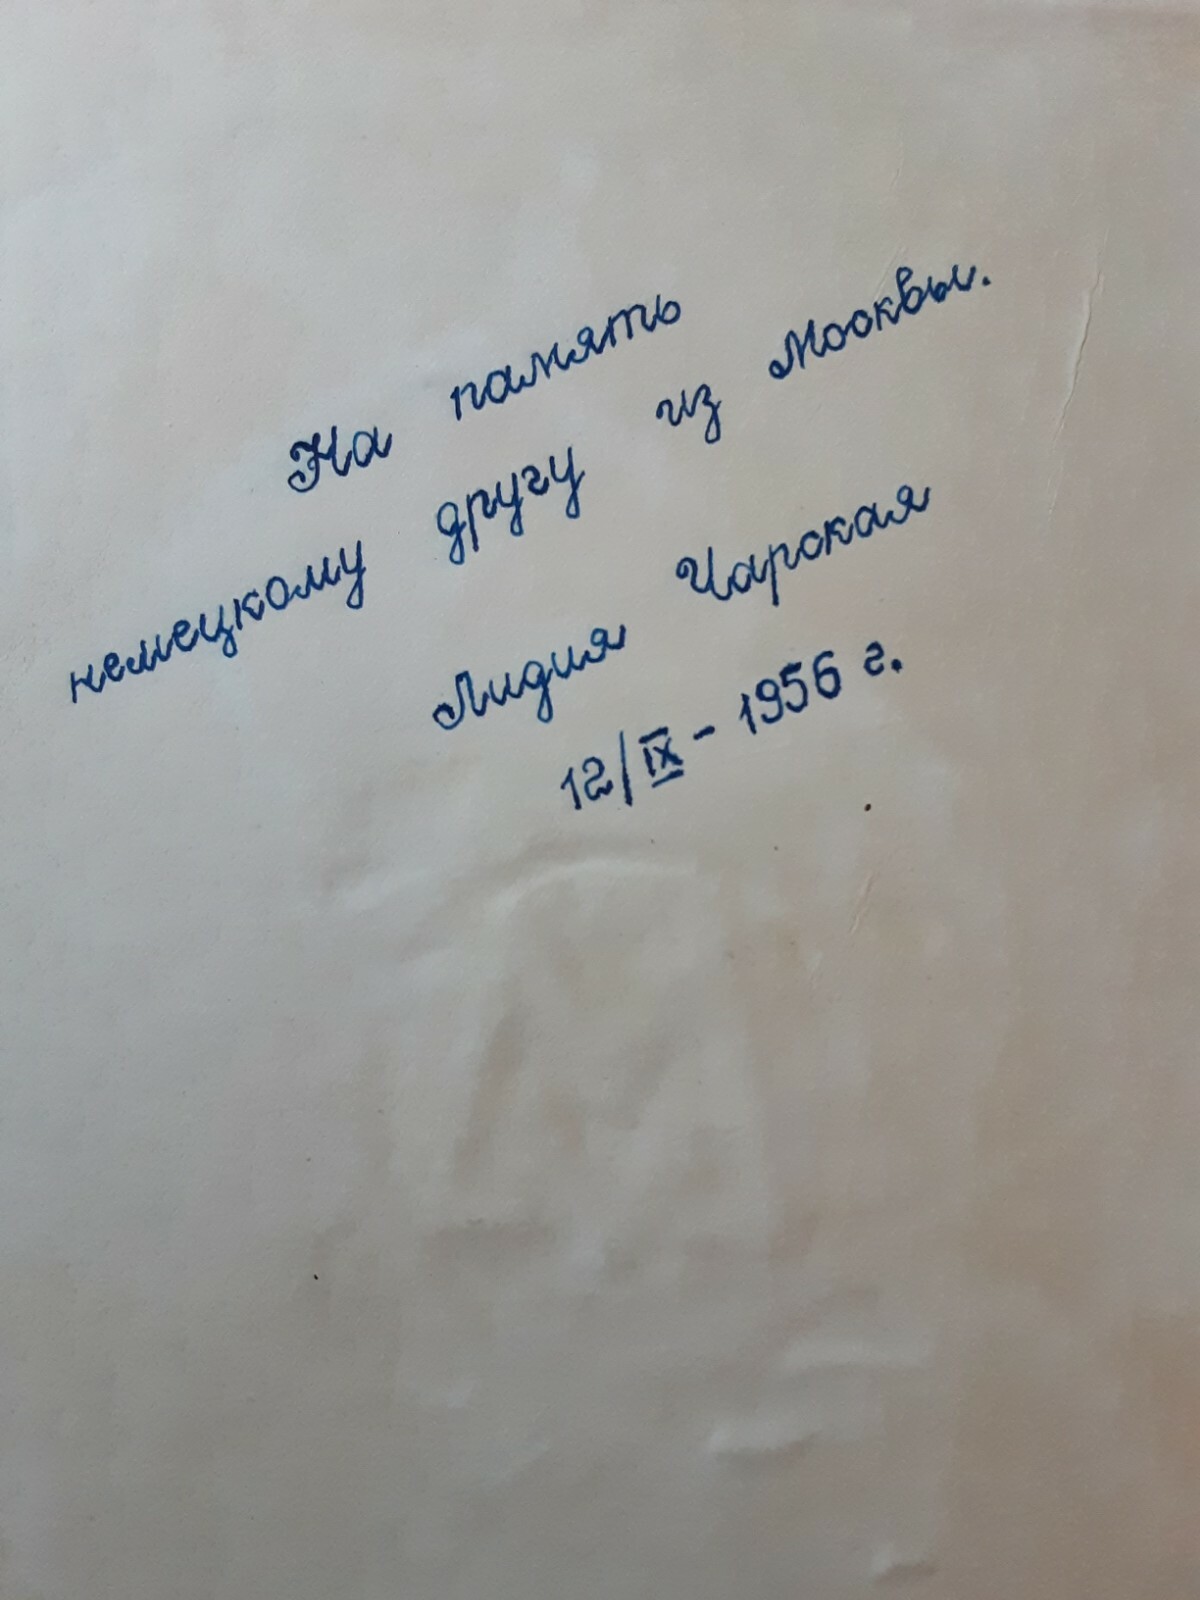 На память
немецкому другу из Москвы.
Лидия Чарская
12/IX - 1956 г.